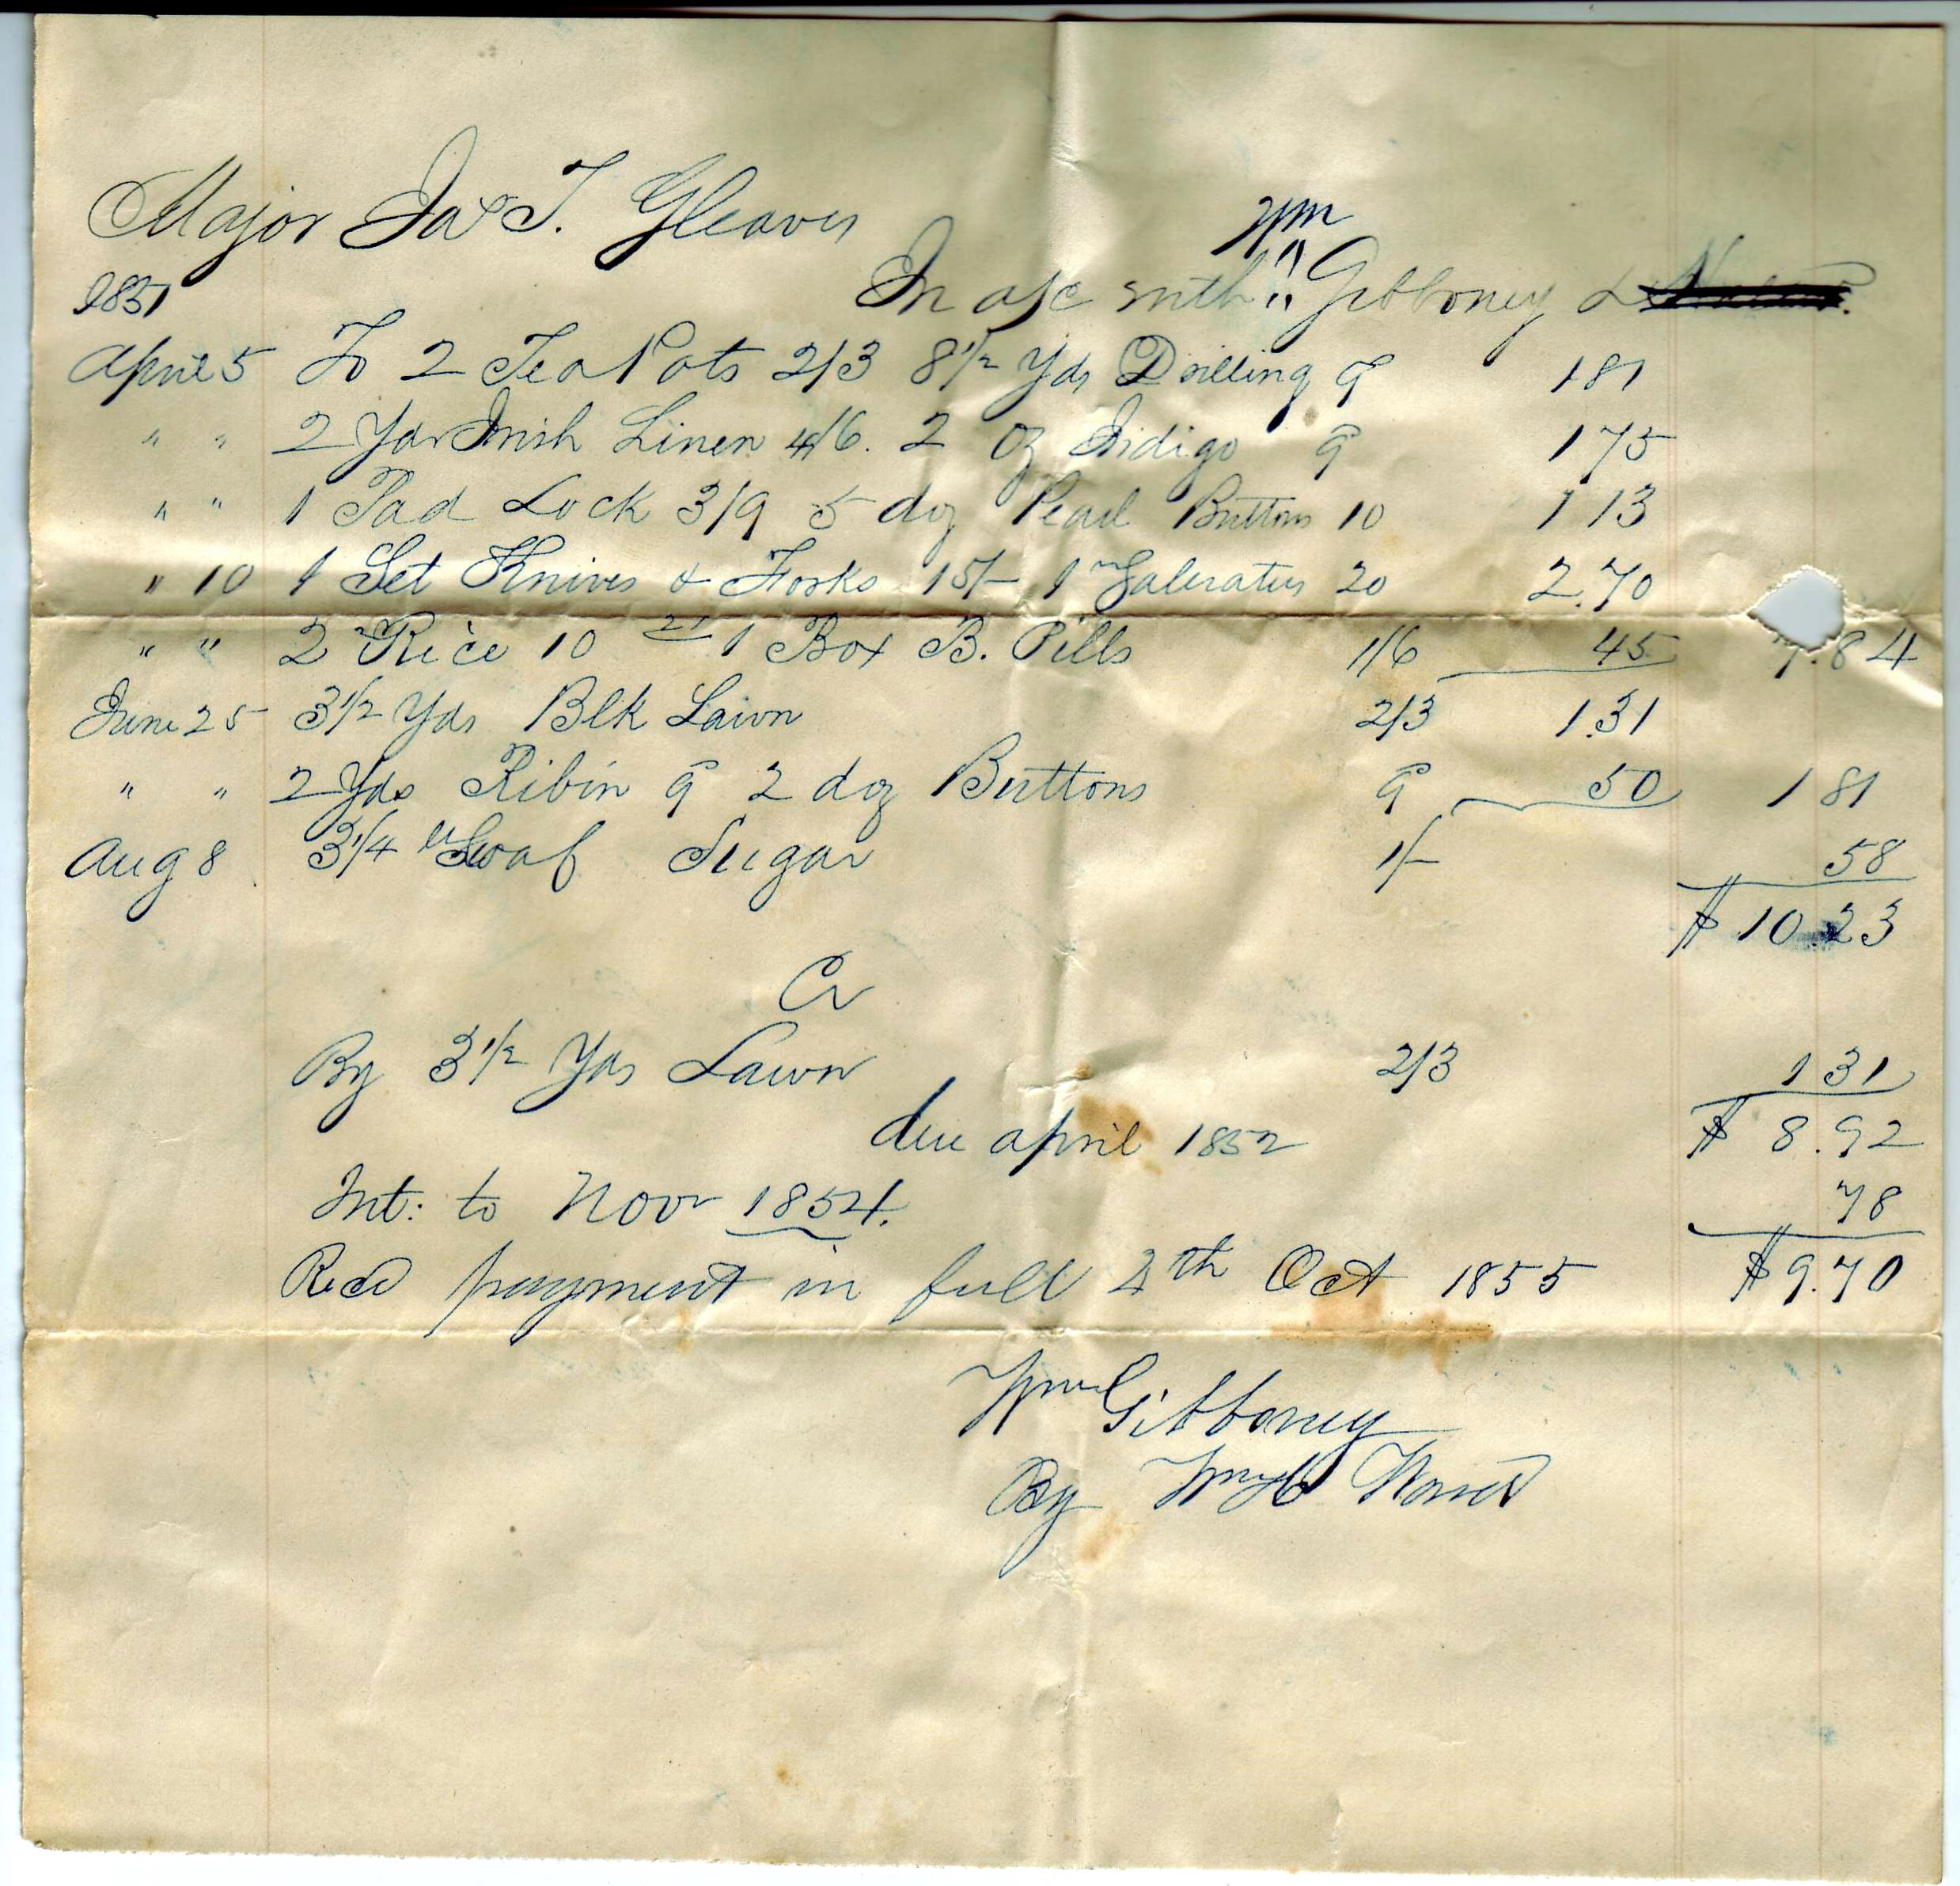 Major Jas T. Gleaves
Wm
1851 In a/c with " Gibboney &
April 5 To 2 Tea Pots 2/3 8 1/2 Yds Drilling 9 1 81
" " 2 Yds Irish Linen 4/6. 2 oz Indigo 9 1 75
" " 1 Pad Lock 3/9 5 doz Pearl Buttons 10 1 13
" 10 1 Set Knives & Forks 15/- 1 Saleratus 20 2.70
" " 2 Rice 10 1 Box B. Pills 1/6 45 7.84
June 25 3 1/2 Yds Blk Lawn 2/3 1.31
" " 2 Yds Ribin 9 2 doz Buttons 9 50 1 81
Aug 8 3 1/4 Loaf Sugar 1/- 58
$ 10.23
Cr
By 3 1/2 Yds Lawn 2/3 1 31
due april 1852 $ 8.92
Int: to Novr 1854. 78
Recd payment in full 4th Oct 1855 $9.70
Wm Gibboney
By Wm H